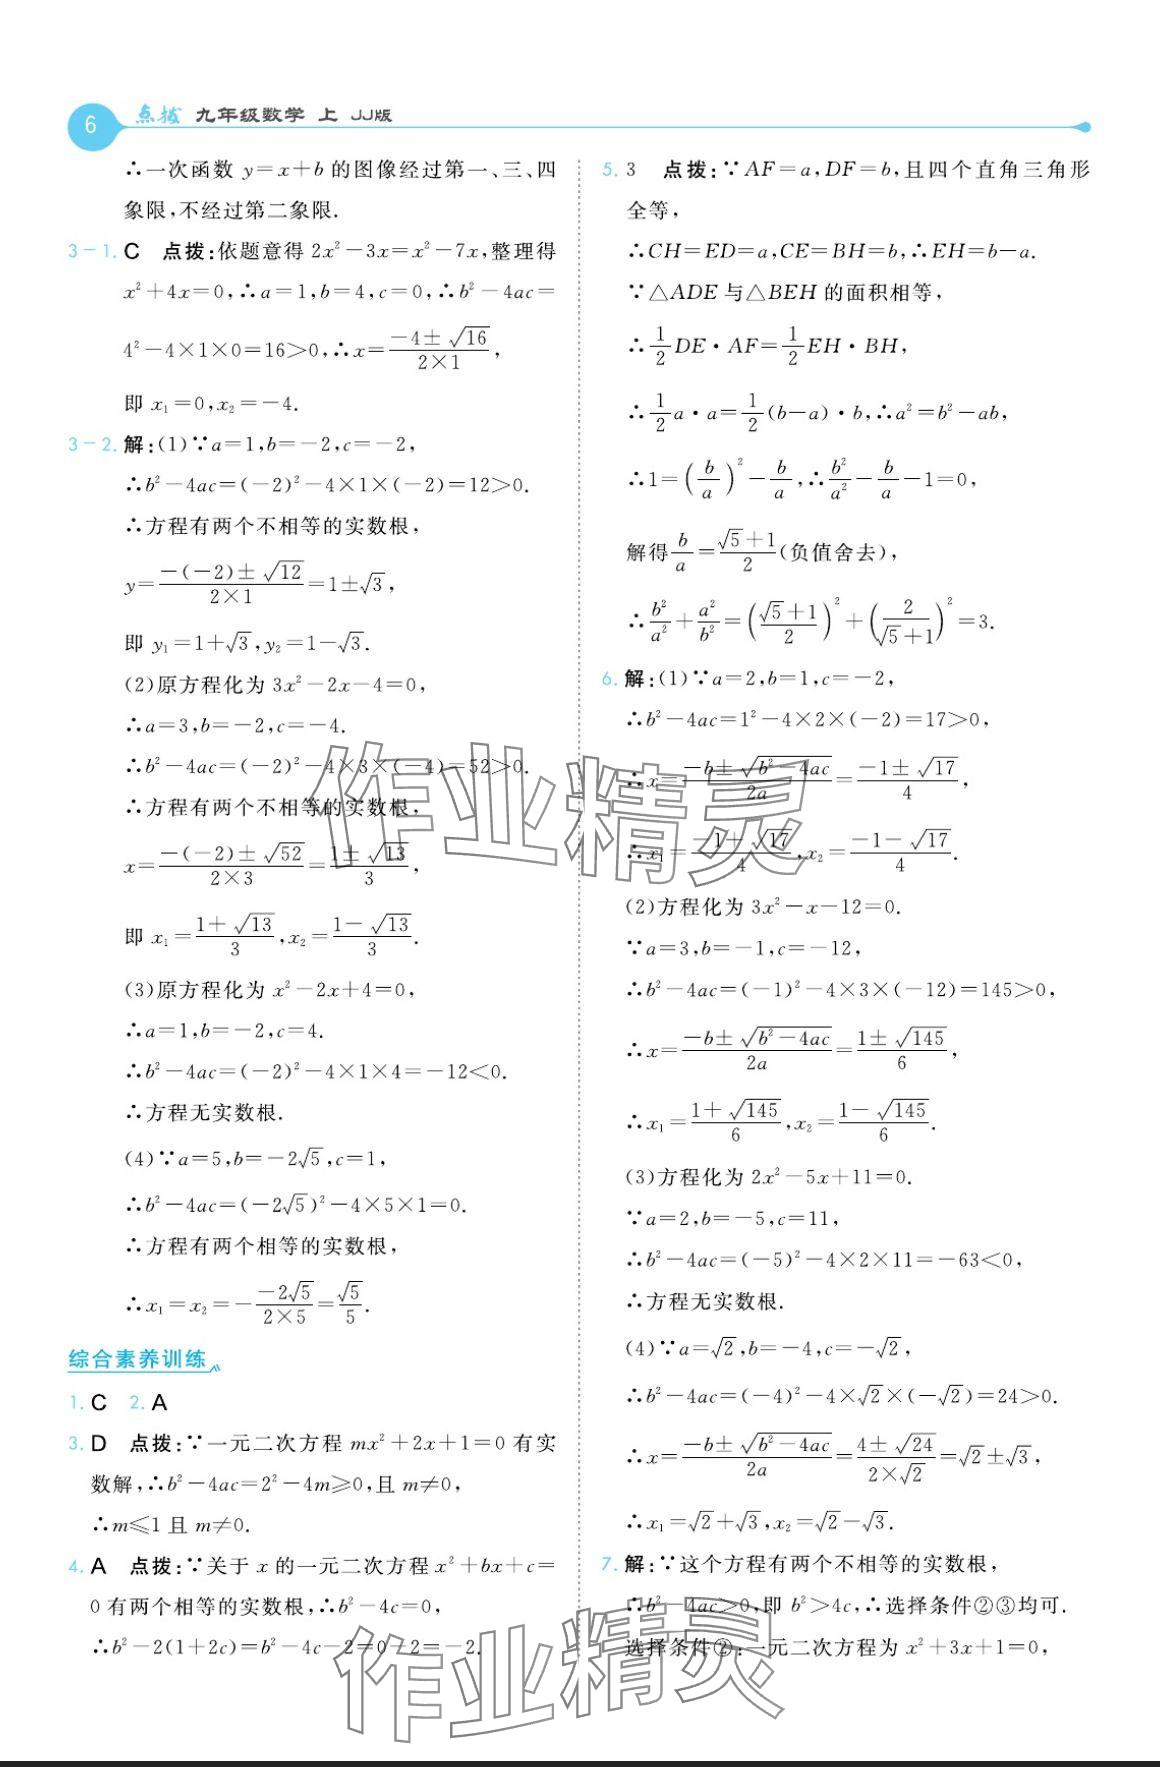 6 点拨 九年级数学 上 JJ版
∴一次函数 y=x+b 的图像经过第一、三、四
象限,不经过第二象限.
3-1. C 点拨:依题意得 2x²-3x=x²-7x,整理得
x²+4x=0,∴a=1,b=4,c=0,∴b²-4ac=
4²-4×1×0=16>0,∴x=\frac{-4±√16}{2×1},
即 x₁=0,x₂=-4.
3-2. 解:(1)∵a=1,b=-2,c=-2,
∴b²-4ac=(-2)²-4×1×(-2)=12>0.
∴方程有两个不相等的实数根,
y=\frac{-(-2)±√12}{2×1}=1±√3,
即 y₁=1+√3,y₂=1-√3.
(2)原方程化为 3x²-2x-4=0,
∴a=3,b=-2,c=-4.
∴b²-4ac=(-2)²-4×3×(-4)=52>0.
∴方程有两个不相等的实数根,
x=\frac{-(-2)±√52}{2×3}=\frac{1±√13}{3},
即 x₁=\frac{1+√13}{3},x₂=\frac{1-√13}{3}.
(3)原方程化为 x²-2x+4=0,
∴a=1,b=-2,c=4.
∴b²-4ac=(-2)²-4×1×4=-12<0.
∴方程无实数根.
(4)∵a=5,b=-2√5,c=1,
∴b²-4ac=(-2√5)²-4×5×1=0.
∴方程有两个相等的实数根,
∴x₁=x₂=-\frac{-2√5}{2×5}=\frac{√5}{5}.
综合素养训练
1. C 2. A
3. D 点拨:∵一元二次方程 mx²+2x+1=0 有实
数解,∴b²-4ac=2²-4m≥0,且 m≠0,
∴m≤1 且 m≠0.
4. A 点拨:∵关于 x 的一元二次方程 x²+bx+c=
0 有两个相等的实数根,∴b²-4c=0,
∴b²-2(1+2c)=b²-4c-2=0-2=-2.
5. 3 点拨:∵AF=a,DF=b,且四个直角三角形
全等,
∴CH=ED=a,CE=BH=b,∴EH=b-a.
∵△ADE 与△BEH 的面积相等,
∴\frac{1}{2}DE·AF=\frac{1}{2}EH·BH,
∴\frac{1}{2}a·a=\frac{1}{2}(b-a)·b,∴a²=b²-ab,
∴1=(\frac{b}{a})²-\frac{b}{a},∴\frac{b²}{a²}-\frac{b}{a}-1=0,
解得\frac{b}{a}=\frac{√5+1}{2}(负值舍去),
∴\frac{b²}{a²}+\frac{a²}{b²}=(\frac{√5+1}{2})²+(\frac{2}{√5+1})²=3.
6. 解:(1)∵a=2,b=1,c=-2,
∴b²-4ac=1²-4×2×(-2)=17>0,
∴x=\frac{-b±√(b²-4ac)}{2a}=\frac{-1±√17}{4},
∴x₁=\frac{-1+√17}{4},x₂=\frac{-1-√17}{4}.
(2)方程化为 3x²-x-12=0.
∵a=3,b=-1,c=-12,
∴b²-4ac=(-1)²-4×3×(-12)=145>0,
∴x=\frac{-b±√(b²-4ac)}{2a}=\frac{1±√145}{6},
∴x₁=\frac{1+√145}{6},x₂=\frac{1-√145}{6}.
(3)方程化为 2x²-5x+11=0.
∵a=2,b=-5,c=11,
∴b²-4ac=(-5)²-4×2×11=-63<0,
∴方程无实数根.
(4)∵a=√2,b=-4,c=-√2,
∴b²-4ac=(-4)²-4×√2×(-√2)=24>0.
∴x=\frac{-b±√(b²-4ac)}{2a}=\frac{4±√24}{2×√2}=√2±√3,
∴x₁=√2+√3,x₂=√2-√3.
7. 解:∵这个方程有两个不相等的实数根,
∴b²-4ac>0,即 b²>4c,∴选择条件②③均可.
选择条件②:一元二次方程为 x²+3x+1=0,
作业精灵
作业精灵